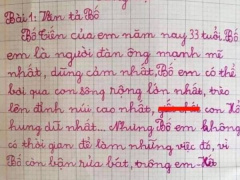 Bài 1: Văn tả Bố
Bố Tiên của em năm nay 33 tuổi. Bố
em là người đàn ông mạnh mẽ
nhất, dũng cảm nhất, Bố em có thể
bơi qua con sông rộng lớn nhất, trèo
lên đỉnh núi cao nhất, con Hổ
hung dữ nhất... Nhưng Bố em không
có thời gian để làm những việc đó, vì
Bố còn bận rửa bát, trông em - Hết